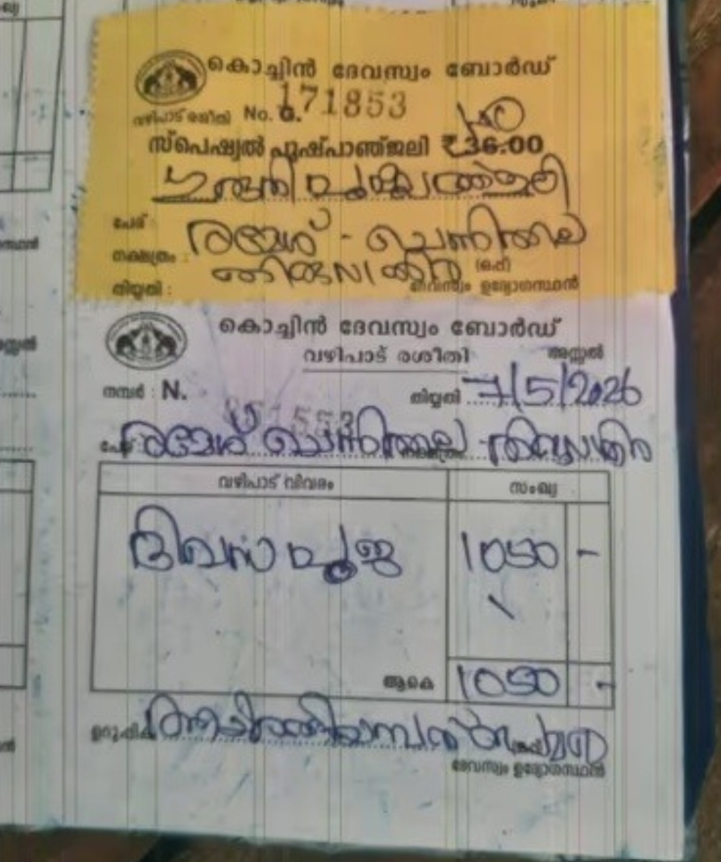 കൊച്ചിൻ ദേവസ്വം ബോർഡ്
വഴിപാട് രശീതി No. G. 171853
സ്പെഷ്യൽ പുഷ്പാഞ്ജലി ₹ 36.00
പുഷ്പാഞ്ജലി
പേര് : രമേശ് - ചെന്നിത്തല
നക്ഷത്രം : തിരുവാതിര (ഒപ്പ്)
തിയ്യതി : ദേവസ്വം ഉദ്യോഗസ്ഥൻ
കൊച്ചിൻ ദേവസ്വം ബോർഡ്
വഴിപാട് രശീതി അസ്സൽ
നമ്പർ : N. തിയ്യതി 7/5/2026
പേര് രമേശ് ചെന്നിത്തല നക്ഷത്രം തിരുവാതിര
വഴിപാട് വിവരം സംഖ്യ
ദിവസ പൂജ 1050 -
ആകെ 1050 -
ഉറുപ്പിക
ദേവസ്വം ഉദ്യോഗസ്ഥൻ